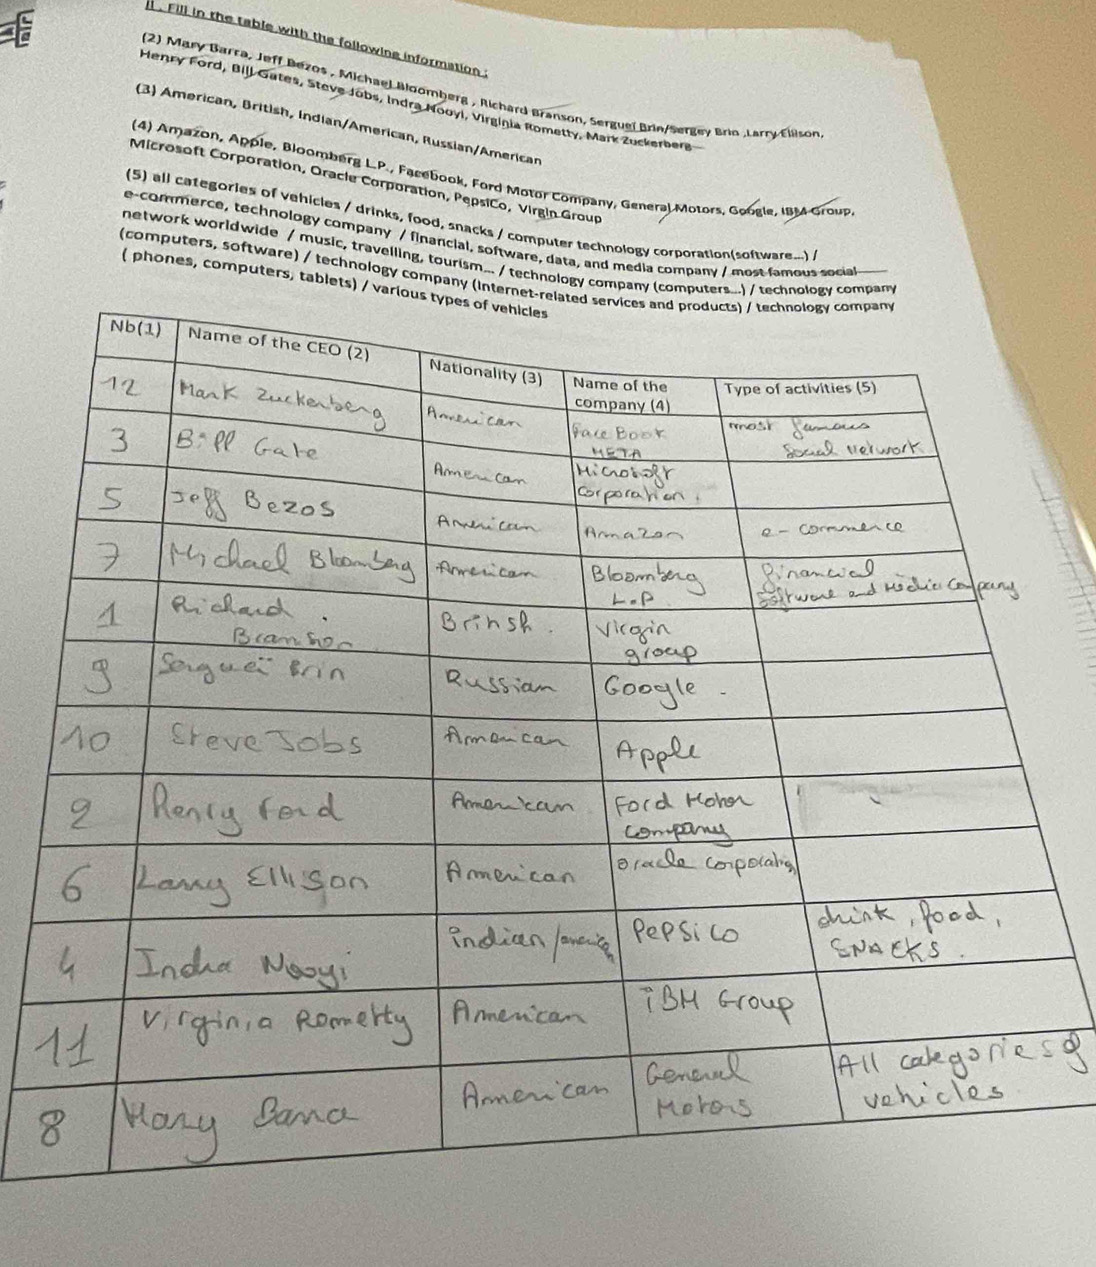 II. Fill in the table with the following information :
(2) Mary Barra, Jeff Bezos , Michael Bloomberg , Richard Branson, Sergueï Brin/Sergey Brin ,Larry Ellison,
Henry Ford, Bill Gates, Steve Jobs, Indra Nooyi, Virginia Rometty, Mark Zuckerberg
(3) American, British, Indian/American, Russian/American
(4) Amazon, Apple, Bloomberg L.P., Facebook, Ford Motor Company, General Motors, Google, IBM Group,
Microsoft Corporation, Oracle Corporation, PepsiCo, Virgin Group
(5) all categories of vehicles / drinks, food, snacks / computer technology corporation(software...) /
e-commerce, technology company / financial, software, data, and media company / most famous social
network worldwide / music, travelling, tourism... / technology company (computers...) / technology company
(computers, software) / technology company (internet-related services and products) / technology company
( phones, computers, tablets) / various types of vehicles
Nb(1) Name of the CEO (2) Nationality (3) Name of the company (4) Type of activities (5)
12 Mark Zuckerberg American Face Book META most famous Social Network
3 Bill Gate American Microsoft Corporation.
5 Jeff Bezos American Amazon e-commerce
7 Michael Bloomberg American Bloomberg L.P financial Software and Media Company
1 Richard Branson British. Virgin group
9 Serguei Brin Russian Google.
10 Steve Jobs American Apple
2 Henry Ford American Ford Motor company
6 Larry Ellison American Oracle corporation
4 Indra Nooyi indian/america PepsiCo drink, food, SNACKS.
11 Virginia Rometty American IBM Group
8 Mary Barra American General Motors All categories of vehicles